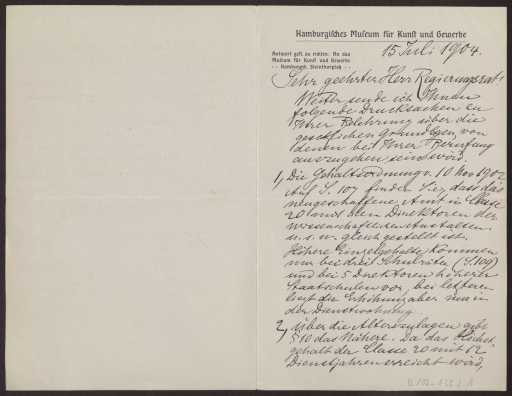 Hamburgisches Museum für Kunst und Gewerbe
Antwort gefl. zu richten: An das
Museum für Kunst und Gewerbe
- - Hamburg 5, Steinthorplatz - -
15 Juli 1904.
Sehr geehrter Herr Regierungsrat!
Weiter sende ich Ihnen
folgende Drucksachen zu
Ihrer Belehrung über die
gesetzlichen Grundlagen, von
denen bei Ihrer Berufung
auszugehen sein wird.
1, Die Gehaltsordnung v. 10 Nov 1902
Auf S. 107 finden Sie, dass das
neugeschaffene Amt in Classe
20 und den Direktoren der
wissenschaftlichen Anstalten
u. s. w. gleich gestellt ist.
Höhere Einzelgehalte kommen
nur bei drei Schulräten (S. 109)
und bei 5 Direktoren höherer
Staatsschulen vor, bei letzteren
liegt die Erhöhung aber nur in
der Dienstwohnung.
2, Über die Alterszulagen gibt
§ 10 das Nähere. Da das Höchst-
gehalt der Classe 20 mit 12
Dienstjahren erreicht wird,